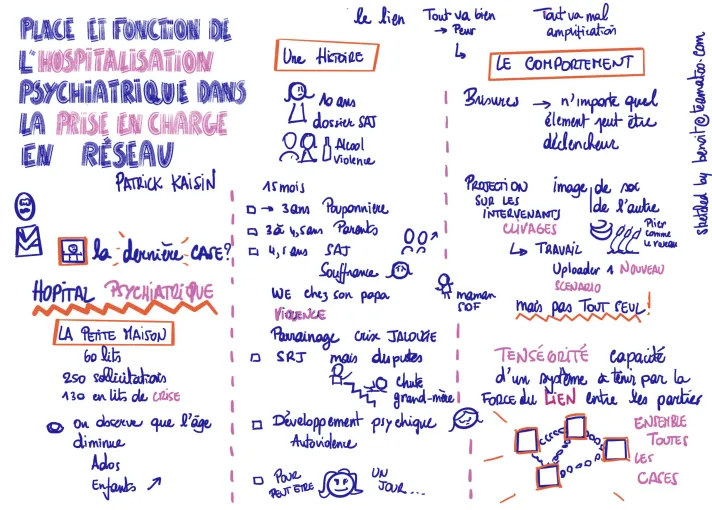 PLACE ET FONCTION DE
L'HOSPITALISATION
PSYCHIATRIQUE DANS
LA PRISE EN CHARGE
EN RÉSEAU
PATRICK KAISIN
la dernière CASE?
HOPITAL PSYCHIATRIQUE
LA PETITE MAISON
60 lits
250 sollicitations
130 en lits de CRISE
on observe que l'âge
diminue
Ados
Enfants ↗
Une HISTOIRE
10 ans
dossier SAJ
Alcool
Violence
15 mois
→ 3 ans Pouponnière
3 à 4,5 ans Parents
4,5 ans SAJ
Souffrance
WE chez son papa
VIOLENCE
maman
SDF
Parrainage crix JALOUZIE
SRJ mais disputes
chute
grand-mère
Développement psychique
Autoviolence
POUR
PEUT ETRE
UN
JOUR...
le lien
Tout va bien
→ Peur
Tout va mal
amplification
LE COMPORTEMENT
Brisures → n'importe quel
élément peut être
déclencheur
PROJECTION
SUR LES
INTERVENANTS
CLIVAGES
image de soi
de l'autre
Plier
comme
le roseau
↳ TRAVAIL
Uploader 1 NOUVEAU
SCENARIO
mais pas TOUT SEUL!
TENSÉGRITÉ capacité
d'un système à tenir par la
FORCE du LIEN entre les parties
ENSEMBLE
TOUTES
LES
CASES
sketched by benoit@teamatou.com